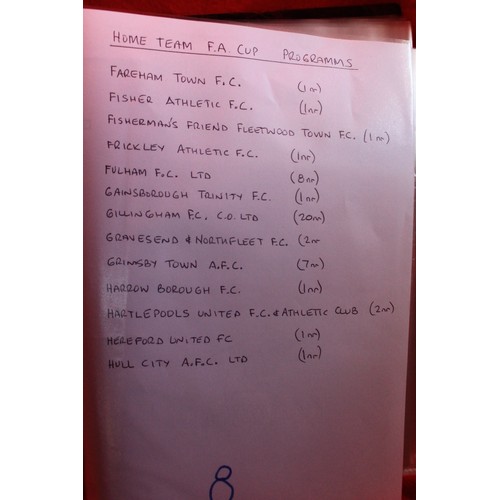 HOME TEAM F.A. CUP PROGRAMMS
FAREHAM TOWN F.C. (1nr)
FISHER ATHLETIC F.C. (1nr)
FISHERMAN'S FRIEND FLEETWOOD TOWN F.C. (1nr)
FRICKLEY ATHLETIC F.C. (1nr)
FULHAM F.C. LTD (8nr)
GAINSBOROUGH TRINITY F.C. (1nr)
GILLINGHAM F.C. C.O. LTD (20nr)
GRAVESEND & NORTHFLEET F.C. (2nr
GRIMSBY TOWN A.F.C. (7nr)
HARROW BOROUGH F.C. (1nr)
HARTLEPOOLS UNITED F.C. & ATHLETIC CLUB (2nr)
HEREFORD UNITED FC (1nr)
HULL CITY A.F.C. LTD (1nr)
8